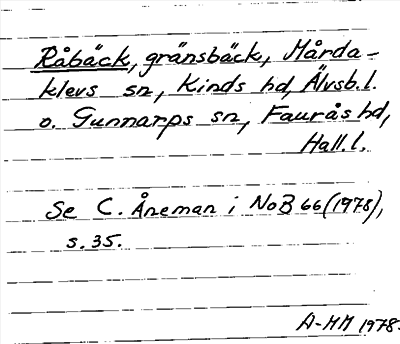 Råbäck, gränsbäck, Mårda-
klevs sn, Kinds hd, Älvsb. l.
o. Gunnarps sn, Faurås hd,
Hall. l.
Se C. Åneman i NoB 66 (1978),
s. 35.
A-MM 1978.